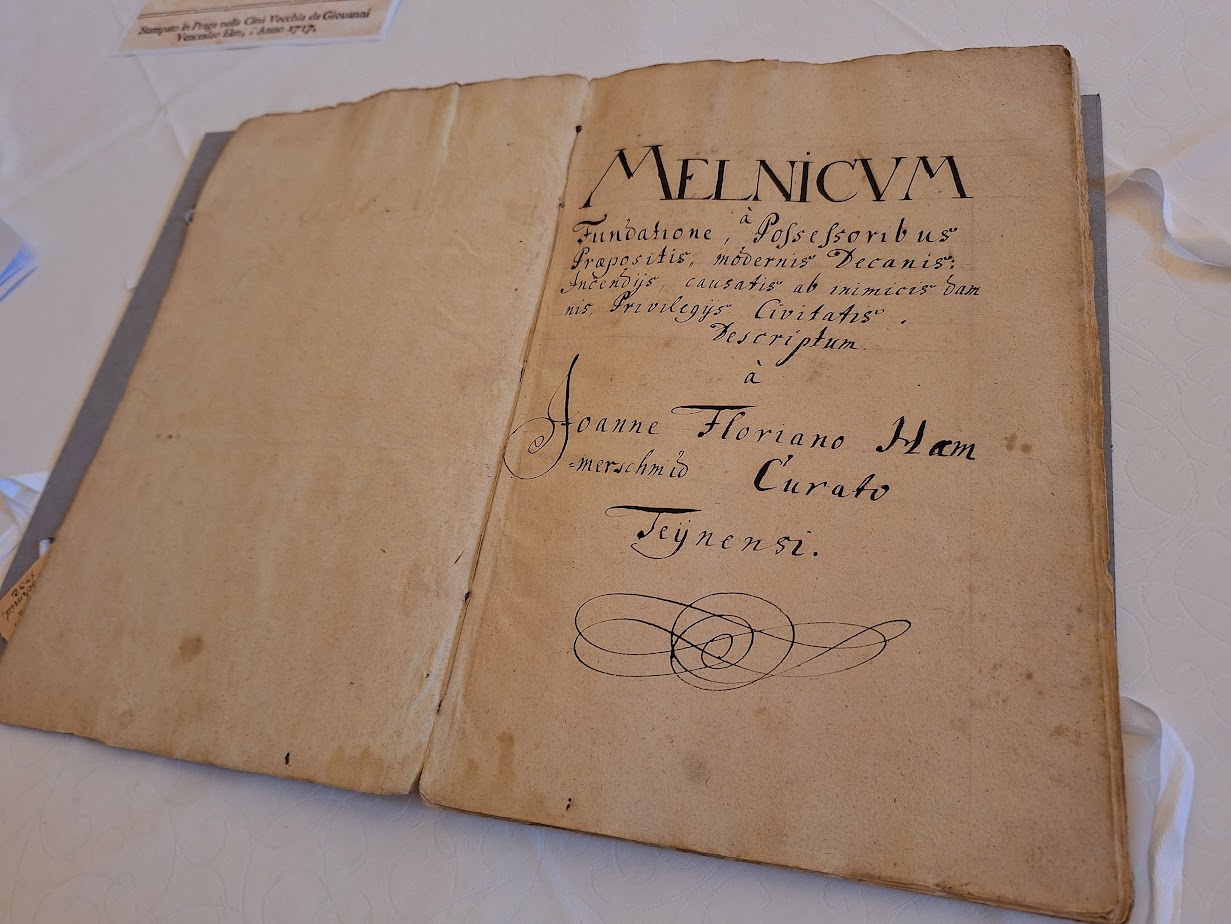 Stampato in Praga nella Città Vecchia da Giovanni
Venceslao Helm, l'Anno 1717.
MELNiCVM
à
Fundatione, Poſseſsoribus
Præpositis, modernis Decanis:
Incendijs, causatis ab inimicis dam
nis, Privilegijs Civitatis.
Descriptum
à
Joanne Floriano Ham
=merschmid Curato
Teÿnensi.